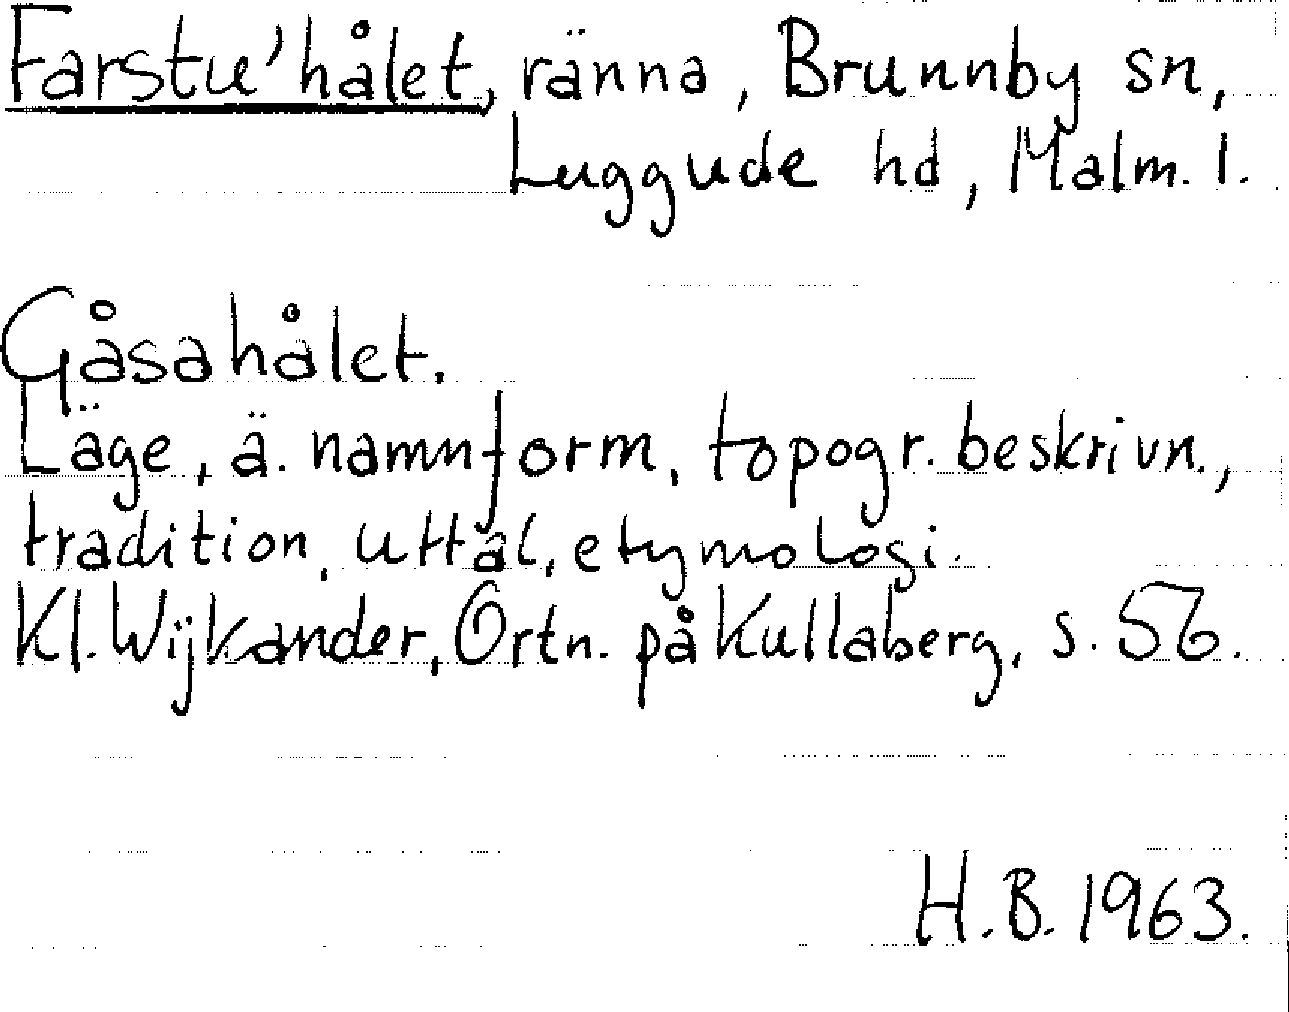 Farstu'hålet, ränna, Brunnby sn,
Luggude hd, Malm. l.
Gåsahålet.
Läge, ä. namnform, topogr. beskrivn.,
tradition, uttal, etymologi.
Kl. Wijkander, Ortn. på Kullaberg, s. 56.
H.B. 1963.